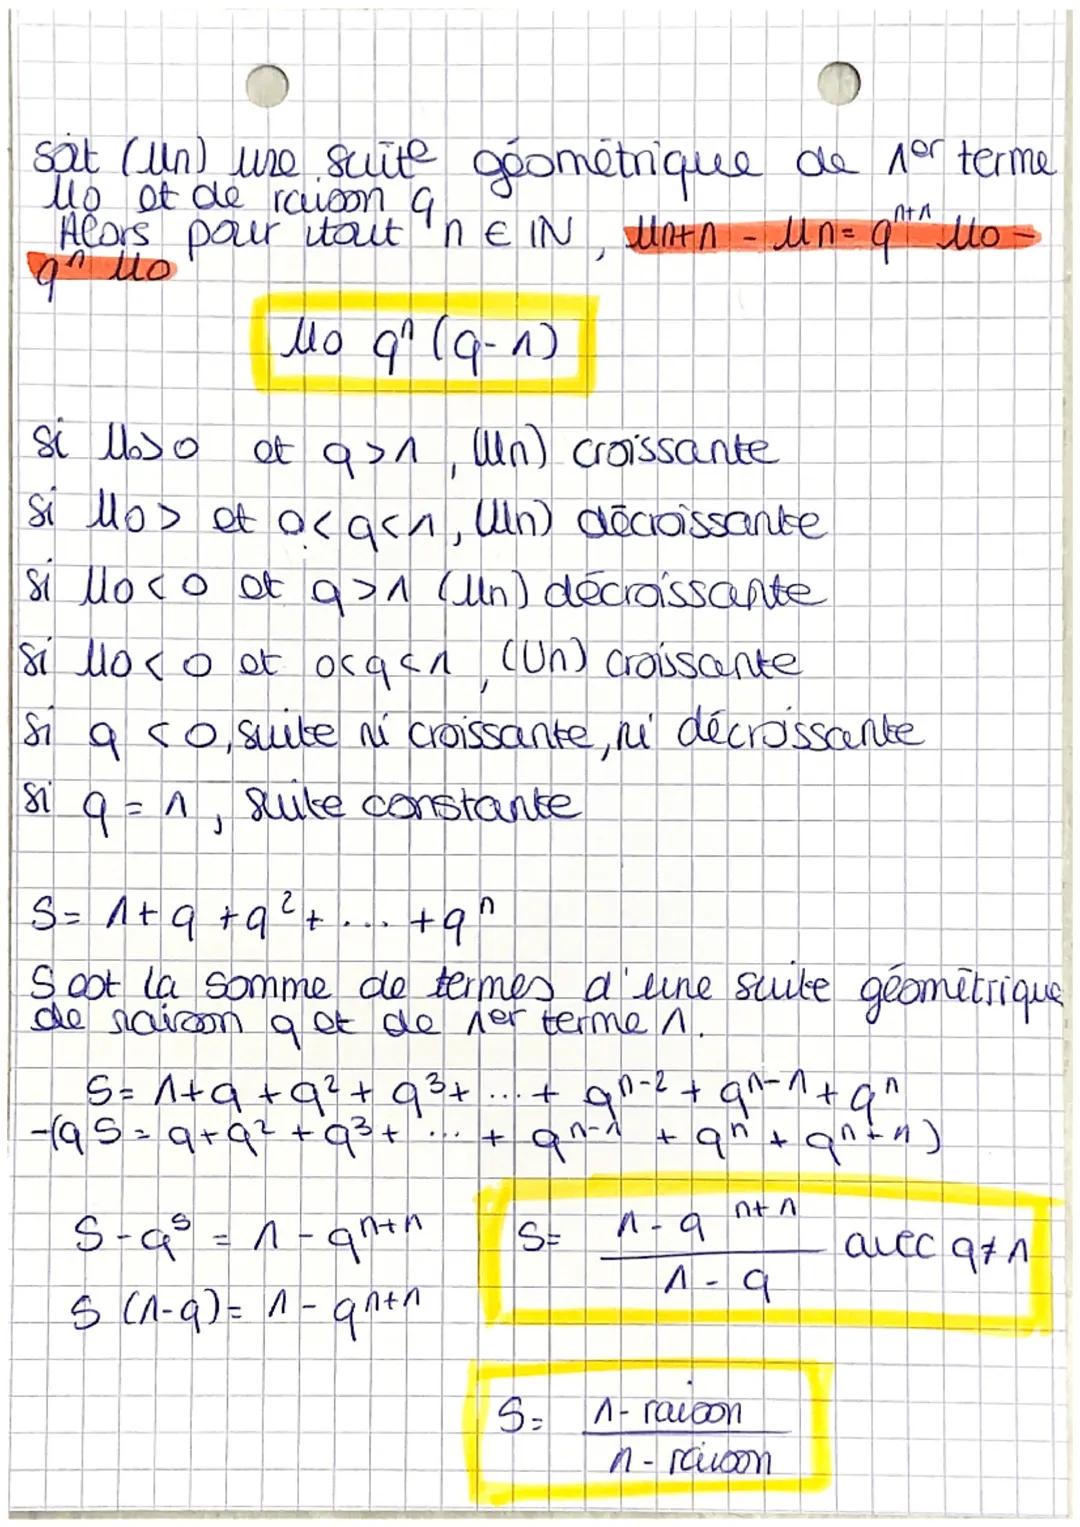 soit (Un) une suite géométrique de 1er terme
U0 et de raison q
Alors pour tout n ∈ IN, Un+1 - Un = q^n+1 U0 -
q^n U0
U0 q^n (q-1)
si U0>0 et q>1, (Un) croissante
si U0> et 0<q<1, (Un) décroissante
si U0<0 et q>1 (Un) décroissante
si U0<0 et 0<q<1, (Un) croissante
si q <0, suite ni croissante, ni décroissante
si q = 1, suite constante
S= 1+q +q²+ ... +q^n
S est la somme de termes d'une suite géométrique
de raison q et de 1er terme 1.
S= 1+q+q²+ q³+ ... + q^n-2 + q^n-1 + q^n
-(qS = q+q² +q³+ ... + q^n-1 + q^n + q^n+1)
S-q^S = 1 - q^n+1
S (1-q)= 1 - q^n+1
S= (1-q^n+1)/(1-q) avec q≠1
S= 1-raison
1-raison